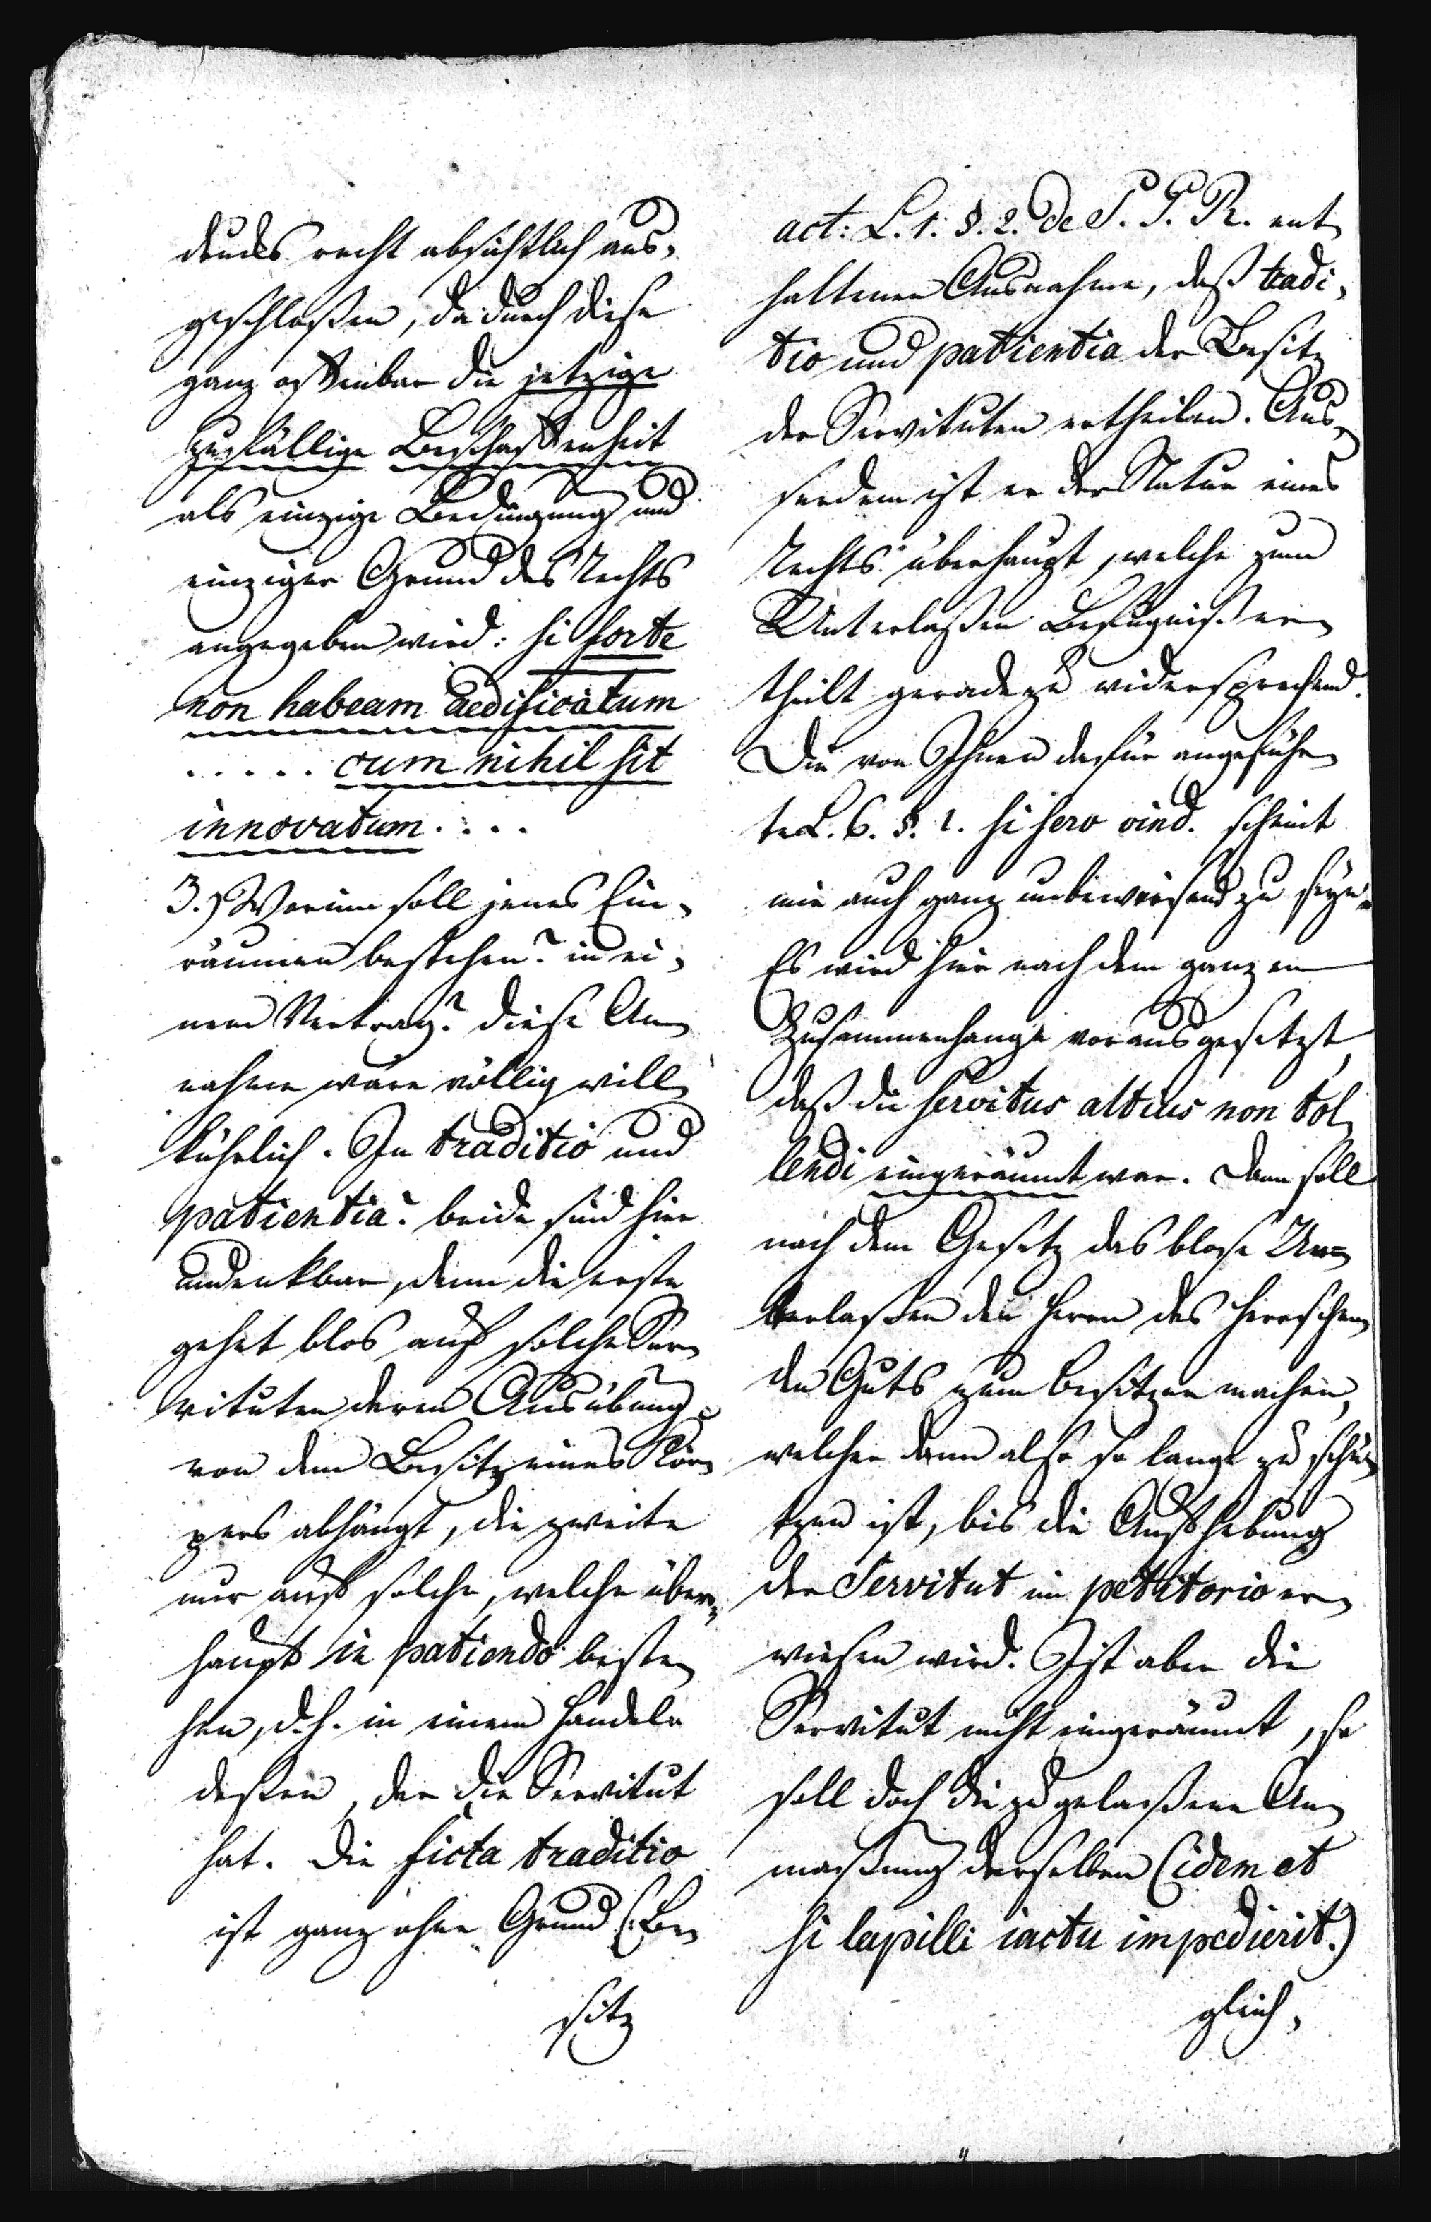 deudes recht absichtlich aus,
geschloßen, da durch diese
ganz offenbar die jetzige
zufällige Beschaffenheit
als einzige Bedingung und
einziger Grund des Rechts
angegeben wird: si forte
non habeam aedificatum
..... cum nihil sit
innovatum....
3.) Worinn soll jenes Ein,
räumen bestehen? in ei,
nem Vertrag? diese An,
nahme wäre völlig will,
kührlich. In traditio und
patientia? beide sind hier
undenkbar, denn die erste
gehet blos auf solche Ser,
vituten deren Ausübung
von dem Besitz eines Kör,
pers abhängt, die zweite
nur auf solche, welche über,
haupt in patiendo beste,
hen, d. h. in einem Handeln
deßen, der die Servitut
hat. Die ficta traditio
ist ganz ohne Grund (: Be,
sitz
act: L. 1. §. 2. de S. P. R. ent,
haltenen Ausnahme, daß tradi,
tio und patientia den Besitz
der Servituten ertheilen. Aus,
serdem ist er der Natur eines
Rechts überhaupt, welche zum
Unterlaßen Befugniß er,
theilt geradezu widersprechend.
Die von Ihnen dafür angeführ,
te L. 6. §. 1. si serv vind. scheint
mir auch ganz unbeweisend zu seyn.
Es wird hier nach dem ganzen
Zusammenhange vorausgesetzt,
daß die servitus altius non tol,
lendi eingeräumt war. Dann soll
nach dem Gesetz das blose Un=
terlaßen den Herrn des herrschen,
den Guts zum Besitzer machen,
welcher denn also so lange zu schü,
tzen ist, bis die Aufhebung
der Servitut im petitorio er,
wiesen wird. Ist aber die
Servitut nicht eingeräumt, so
soll doch die zugelaßene An,
maßung derselben (idem et
si lapilli iactu impedierit.)
gleich,